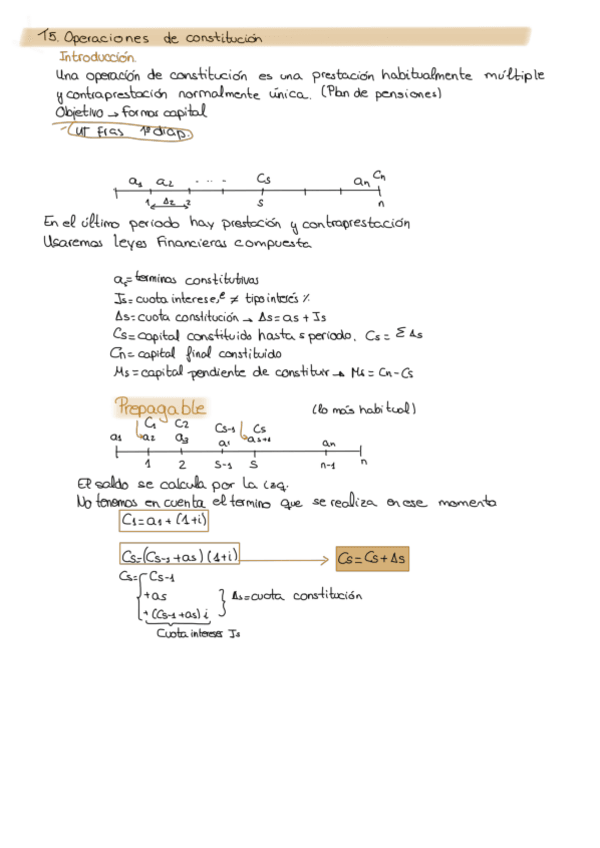 T5. Operaciones de constitución
Introducción.
Una operación de constitución es una prestación habitualmente múltiple
y contraprestación normalmente única. (Plan de pensiones)
Objetivo → formar capital
a1 a2 ---- Cs an Cn
1 Δ2 2 s n
En el último periodo hay prestación y contraprestación
Usaremos leyes financieras compuesta
as= terminos constitutivos
Is= cuota interese, € ≠ tipo interés %
Δs= cuota constitución → Δs= as + Is
Cs= capital constituido hasta s periodo. Cs = Σ Δs
Cn= capital final constituido
Ms= capital pendiente de constituir → Ms = Cn - Cs
Prepagable (lo más habitual)
C1 C2 Cs-1 Cs
a1 a2 a3 a1 as+1 an
1 2 s-1 s n-1 n
El saldo se calcula por la izq.
No tenemos en cuenta el termino que se realiza en ese momento
C1= a1 + (1+i)
Cs=(Cs-1 + as) (1+i) → Cs = Cs + Δs
Cs= Cs-1
+as
+ (Cs-1 + as) i
Δs= cuota constitución
Cuota intereses Is